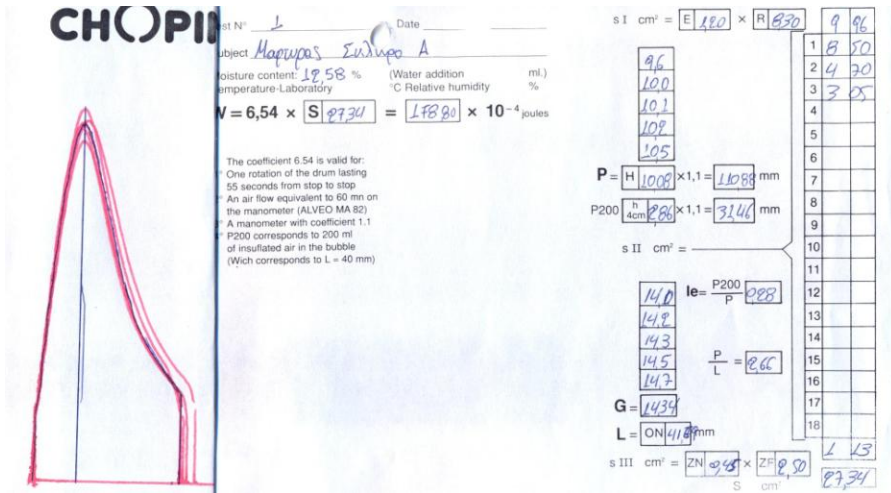 CHOPIN
est N° 1 Date
ubject Μαρτυρας Σκληρο Α
oisture content: 12,58 % (Water addition ml.)
emperature-Laboratory °C Relative humidity %
W = 6,54 × S 27,34 = 178,80 × 10⁻⁴ joules
The coefficient 6.54 is valid for:
One rotation of the drum lasting
55 seconds from stop to stop
An air flow equivalent to 60 mn on
the manometer (ALVEO MA 82)
A manometer with coefficient 1.1
P200 corresponds to 200 ml
of insuflated air in the bubble
(Wich corresponds to L = 40 mm)
s I cm² = E 1,20 × R 8,30
9,6
10,0
10,1
10,2
10,5
P = H 100,8 ×1,1 = 110,88 mm
P200 h 4cm 28,6 ×1,1 = 31,46 mm
s II cm² =
14,0
14,2
14,3
14,5
14,7
Ie= P200 P 0,28
P L = 2,66
G = 14,34
L = ON mm
s III cm² = ZN 0,45 × ZF 2,50
S cm²
9 96
1 8 50
2 4 70
3 3 05
4
5
6
7
8
9
10
11
12
13
14
15
16
17
18
1 13
27,34